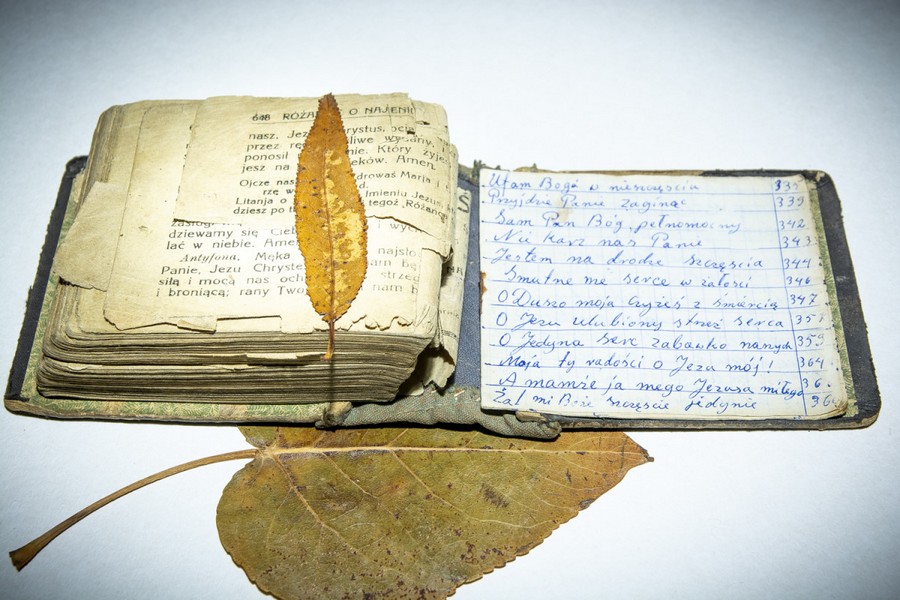 648 RÓŻA O NAJEN
nasz, Jez Chrystus,
przez rę liwie wydany,
ponosił nie. Który żyje
jesz na wieków. Amen.
Ojcze nas Zdrowaś Maria i
rzę w d.
Litania o Imieniu Jezus,
dziesz po tegoż „Różańc
zasług i wych
dziewamy się Cieb
lać w niebie. Ame
Antyfona. Męka najsło
Panie, Jezu Chryste am bę
siłą i mocą nas och strzeg
i broniącą; rany Two nam b
Ufam Bogu w nieszczęściu 339
Przyjdzie Panie zaginąć 339
Sam Pan Bóg pełnomocny 342
Nie karz nas Panie 343
Jestem na drodze szczęścia 344
Smutne me serce w żałości 346
O Duszo moja czyześ z śmiercią 347
O Jezu ulubiony strzeż serca 35
O Jedyna serc zabawko naszych 359
Moja ty radości o Jezu mój! 364
A mamże ja mego Jezusa miłego 36
Żal mi Boże szczęście jedynie 36